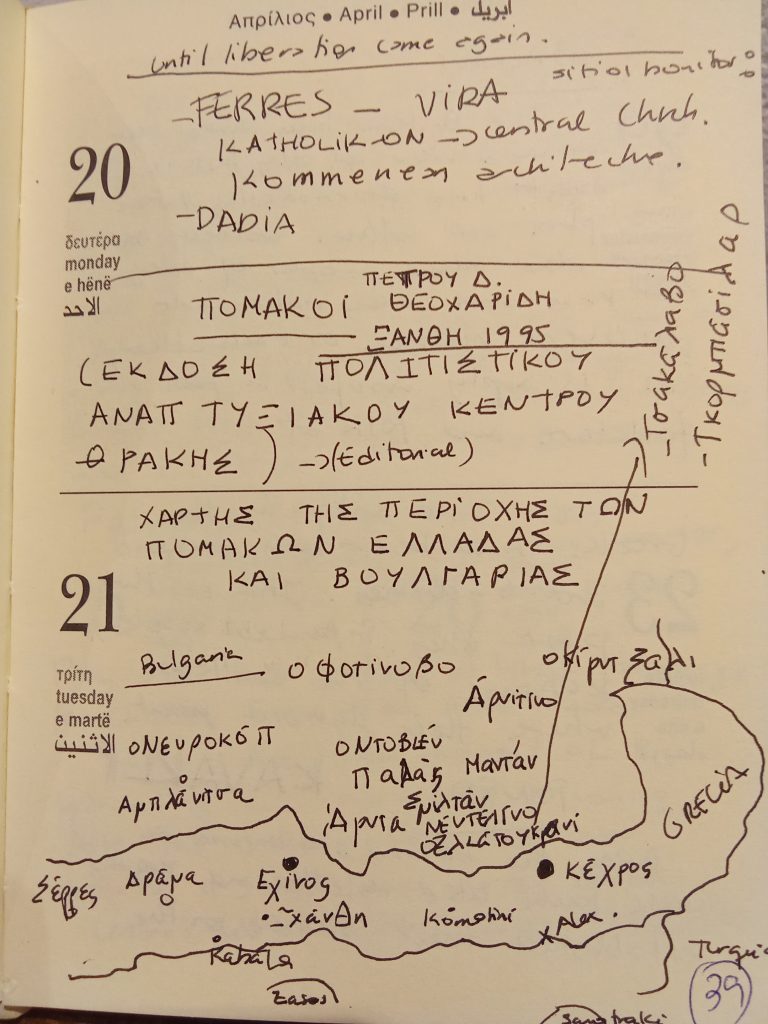 Απρίλιος • April • Prill • ابريل
until liberation come again.
sitios bonitos:
-FERRES - VIRA
KATHOLIKON -> central Church.
Kommenean architecture.
-DADIA
20
δευτέρα
monday
e hënë
الاحد
ΠΕΤΡΟΥ Δ.
ΠΟΜΑΚΟΙ ΘΕΟΧΑΡΙΔΗ
ΞΑΝΘΗ 1995
(ΕΚΔΟΣΗ ΠΟΛΙΤΙΣΤΙΚΟΥ
ΑΝΑΠΤΥΞΙΑΚΟΥ ΚΕΝΤΡΟΥ
ΘΡΑΚΗΣ) -> (Editorial)
-Τσακάλαβο
-Τκορμπασίλαρ
ΧΑΡΤΗΣ ΤΗΣ ΠΕΡΙΟΧΗΣ ΤΩΝ
ΠΟΜΑΚΩΝ ΕΛΛΑΔΑΣ
ΚΑΙ ΒΟΥΛΓΑΡΙΑΣ
21
τρίτη
tuesday
e martë
الاثنين
Bulgaria
ο Φοτίνοβο
ο Κίρντζαλι
Άρντινο
ο Νευροκόπ
ο Ντοβλέν
Παλάς
Μαντάν
Αμπλάνιτσα
Σμιλτάν
Άρντα
Νεντελίνο
Ζλατουκράνι
GRECIA
Σέρρες
Δράμα
Εχίνος
Κέχρος
Ξάνθη
Komotini
Alex.
Kabala
Turquia
Zasos
Samotraki
39